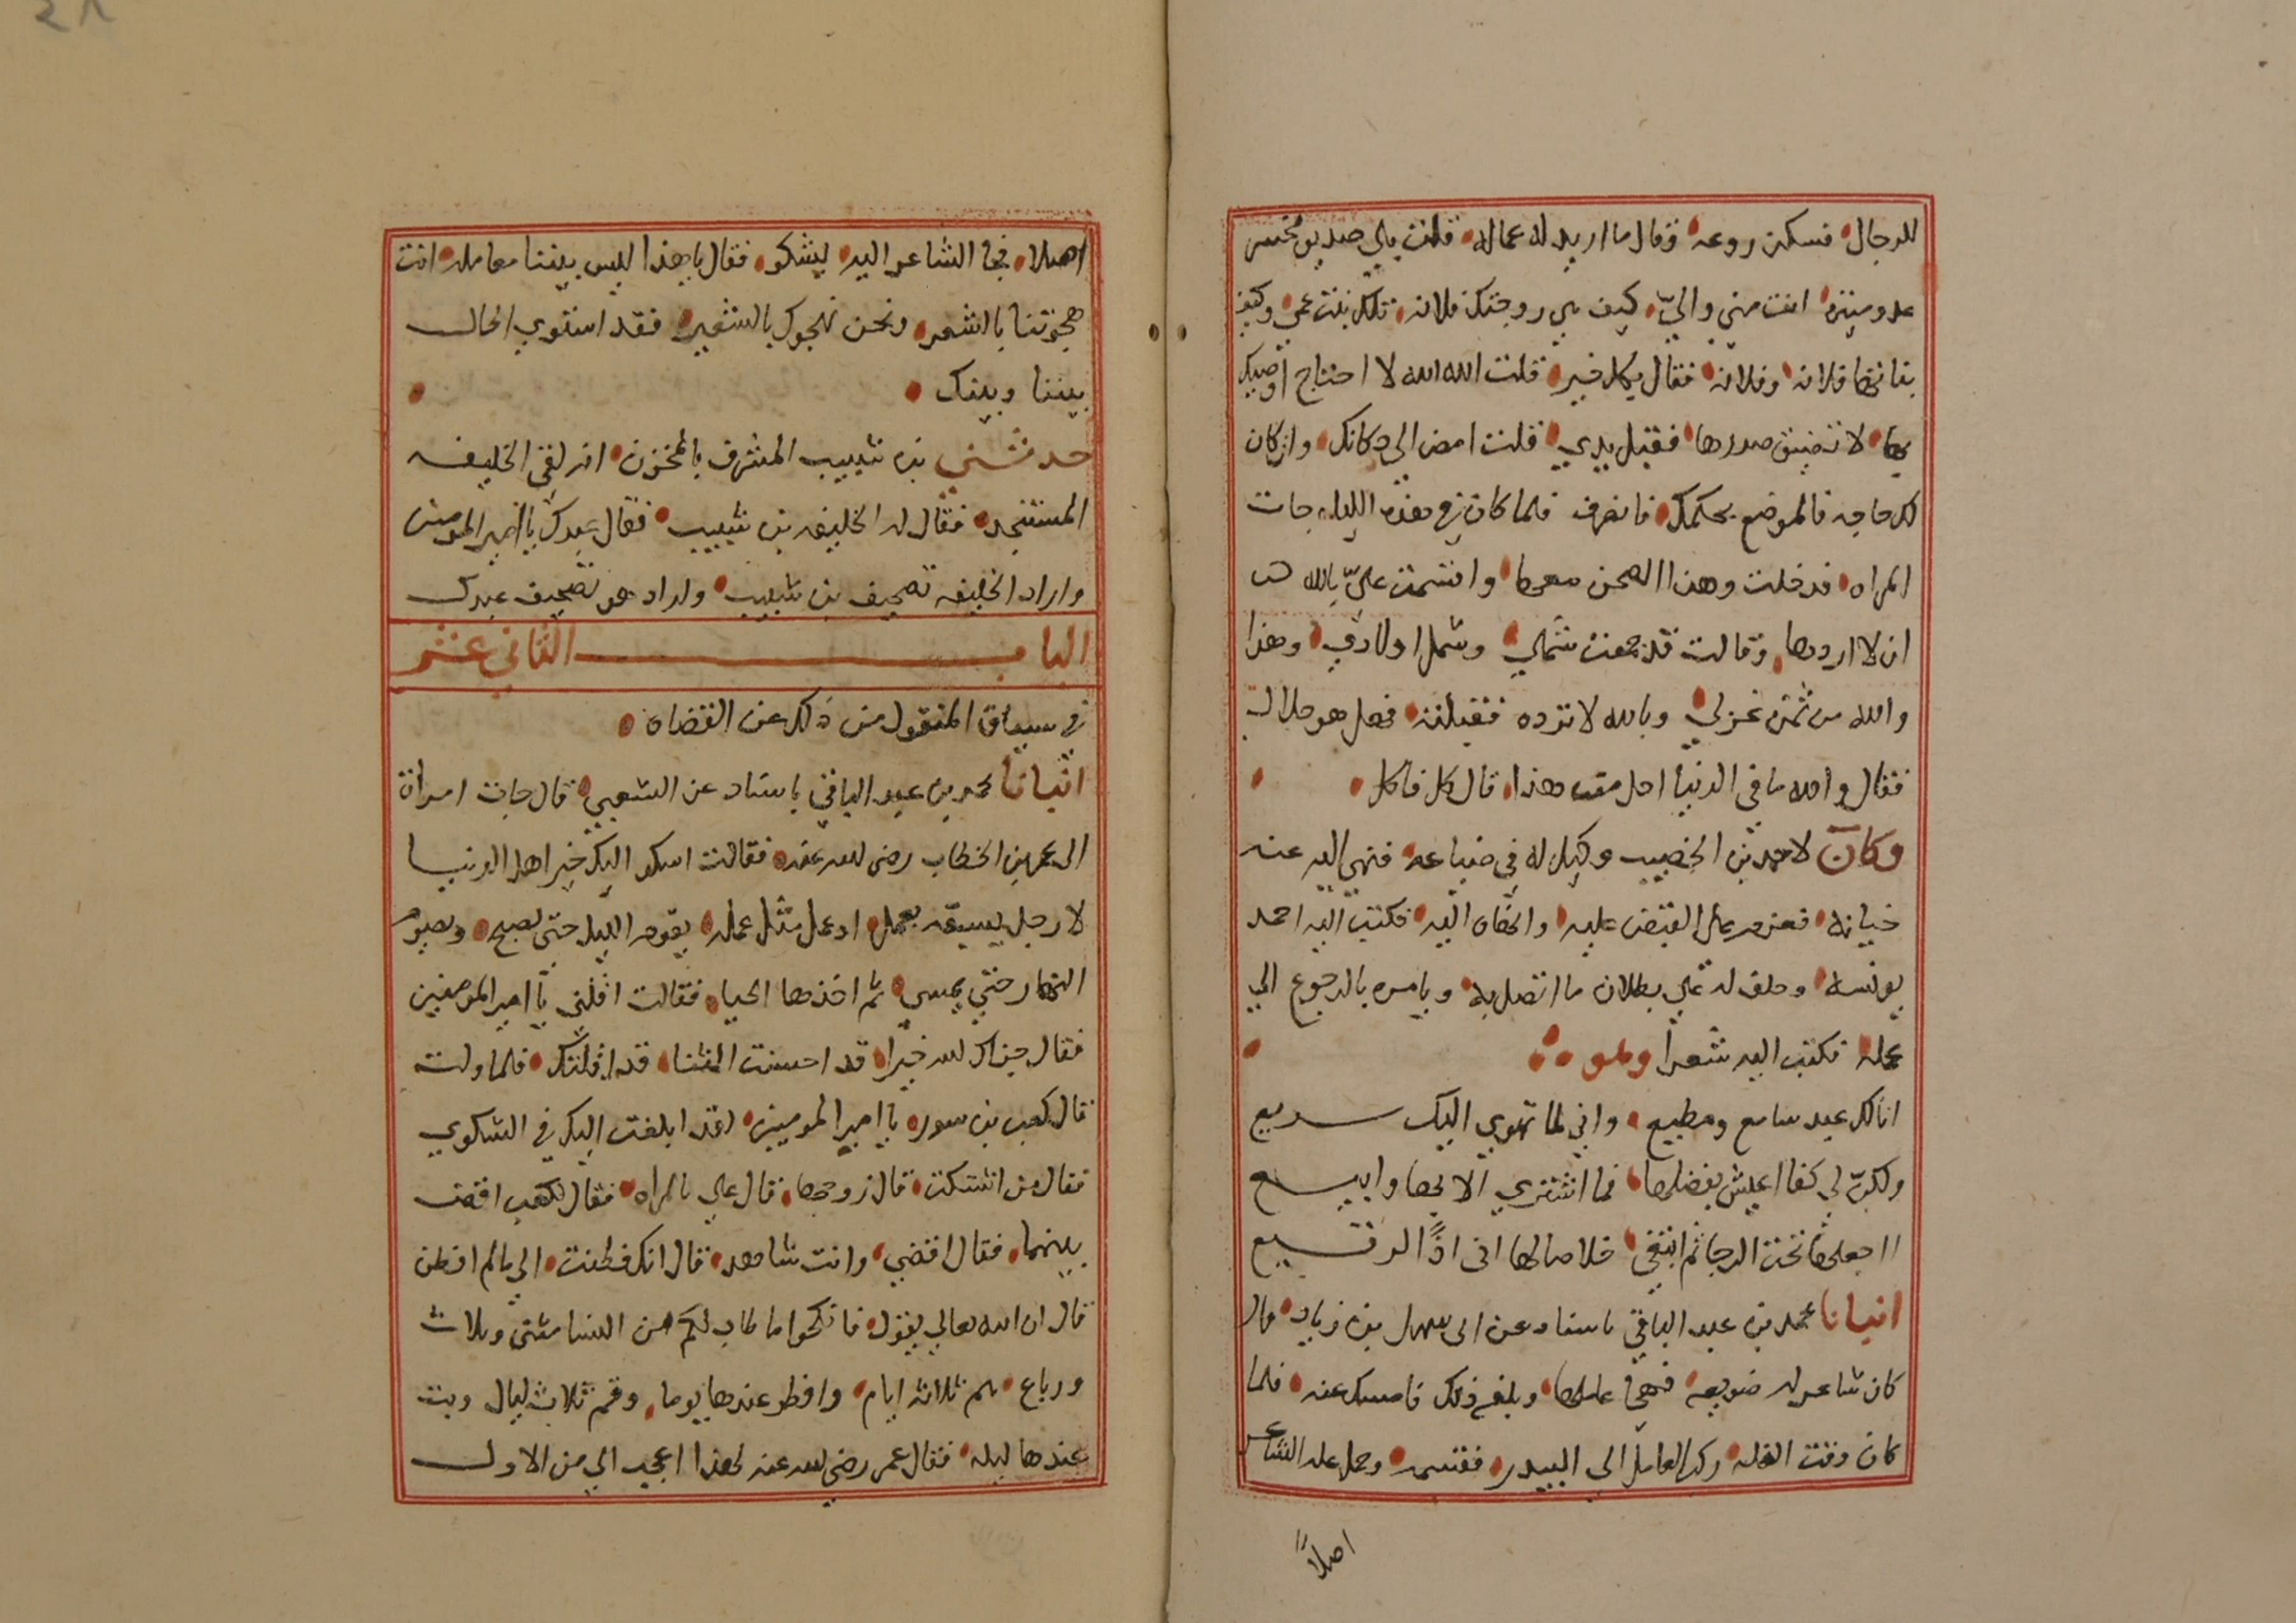 للرجال فسكن روعه وقال ما اريد له عماله قلت يا صديق مختسر
عدو مبين انت مني والي كيف هي زوجتك فلانه تلك بنت عمي وكيف
بناتها فلانه وفلانه فقال بكل خير قلت الله الله لا احتاج اوصيك
بها لا تضيق صدرها فقبل يدي قلت امض الى دكانك وان كان
لك حاجه فالموضع بحكمك فانصرف فلما كان في هذه الليله جات
المراه فدخلت وهذا الصحن معها واقسمت علي بالله
ان لا اردها وقالت قد جمعت شملي وشمل اولادي وهذا
والله من ثمن غزلي وبالله لا ترده فقبلته فهل هو حلال
فقال والله ما في الدنيا احل من هذا قال كل فاكل
وكان لاحمد بن الخصيب وكيل له في ضياعه فنهي اليه عنه
خيانه فعزم على القبض عليه والخفاه اليه فكتب اليه احمد
يونسه وحلف له علي بطلان ما اتصل به ويامره بالرجوع الي
عمله فكتب اليه شعرا وهو
انا لك عبد سامع ومطيع واني لما تهوي اليك سريع
ولكن لي كفا اعيش بفضلها فما اشتري الا بها وابيع
ااجعلها تحت الرحا ثم ابتغي خلاصا لها اني اذا لرقيع
انبانا محمد بن عبد الباقي باسناد عن ابي سهل بن زياد قال
كان شاعر له ضويعه فهجا عاملها وبلغه ذلك فامسك عنه فلما
كان وقت الغله ركب العامل الى البيدر فقسمه وحمل غله الشاعر
اصلا
اصلا فجا الشاعر اليه ليشكو فقال يا هذا ليس بيننا معامله انت
هجوتنا بالشعر ونحن نهجوك بالشعير فقد استوي الحال
بيننا وبينك
حدثني بن شبيب المشرف بالمخزن انه لقي الخليفه
المستنجد فقال له الخليفه بن شبيب فقال عبدك يا امير المومنين
واراد الخليفه تصحيف بن شبيب واراد هو تصحيف عبدك
الباب الثاني عشر
في سياق المنقول من ذلك عن القضاه
انبانا محمد بن عبد الباقي باسناد عن الشعبي قال جات امراة
الى عمر بن الخطاب رضي الله عنه فقالت اسكوا اليك خير اهل الدنيا
لا رجل يسبقه بعمل او عمل مثل عمله يقوم الليل حتى يصبح ويصوم
النهار حتي يمسي ثم اخذها الحيا فقالت اقلني يا امير المومنين
فقال جزاك الله خيرا قد احسنت الثنا قد اقلتك فلما ولت
قال كعب بن سور يا امير المومنين لقد ابلغت اليك في الشكوي
فقال من اشتكت قال زوجها قال علي بالمراه فقال لكعب اقض
بينهما فقال اقضي وانت شاهد قال انك فطنت الي ما لم افطن
قال ان الله تعالي يقول فانكحوا ما طاب لكم من النسا مثنى وثلاث
ورباع صم ثلاثه ايام وافطر عندها يوما وقم ثلاث ليال وبت
عندها ليله فقال عمر رضي الله عنه لهذا اعجب الي من الاول